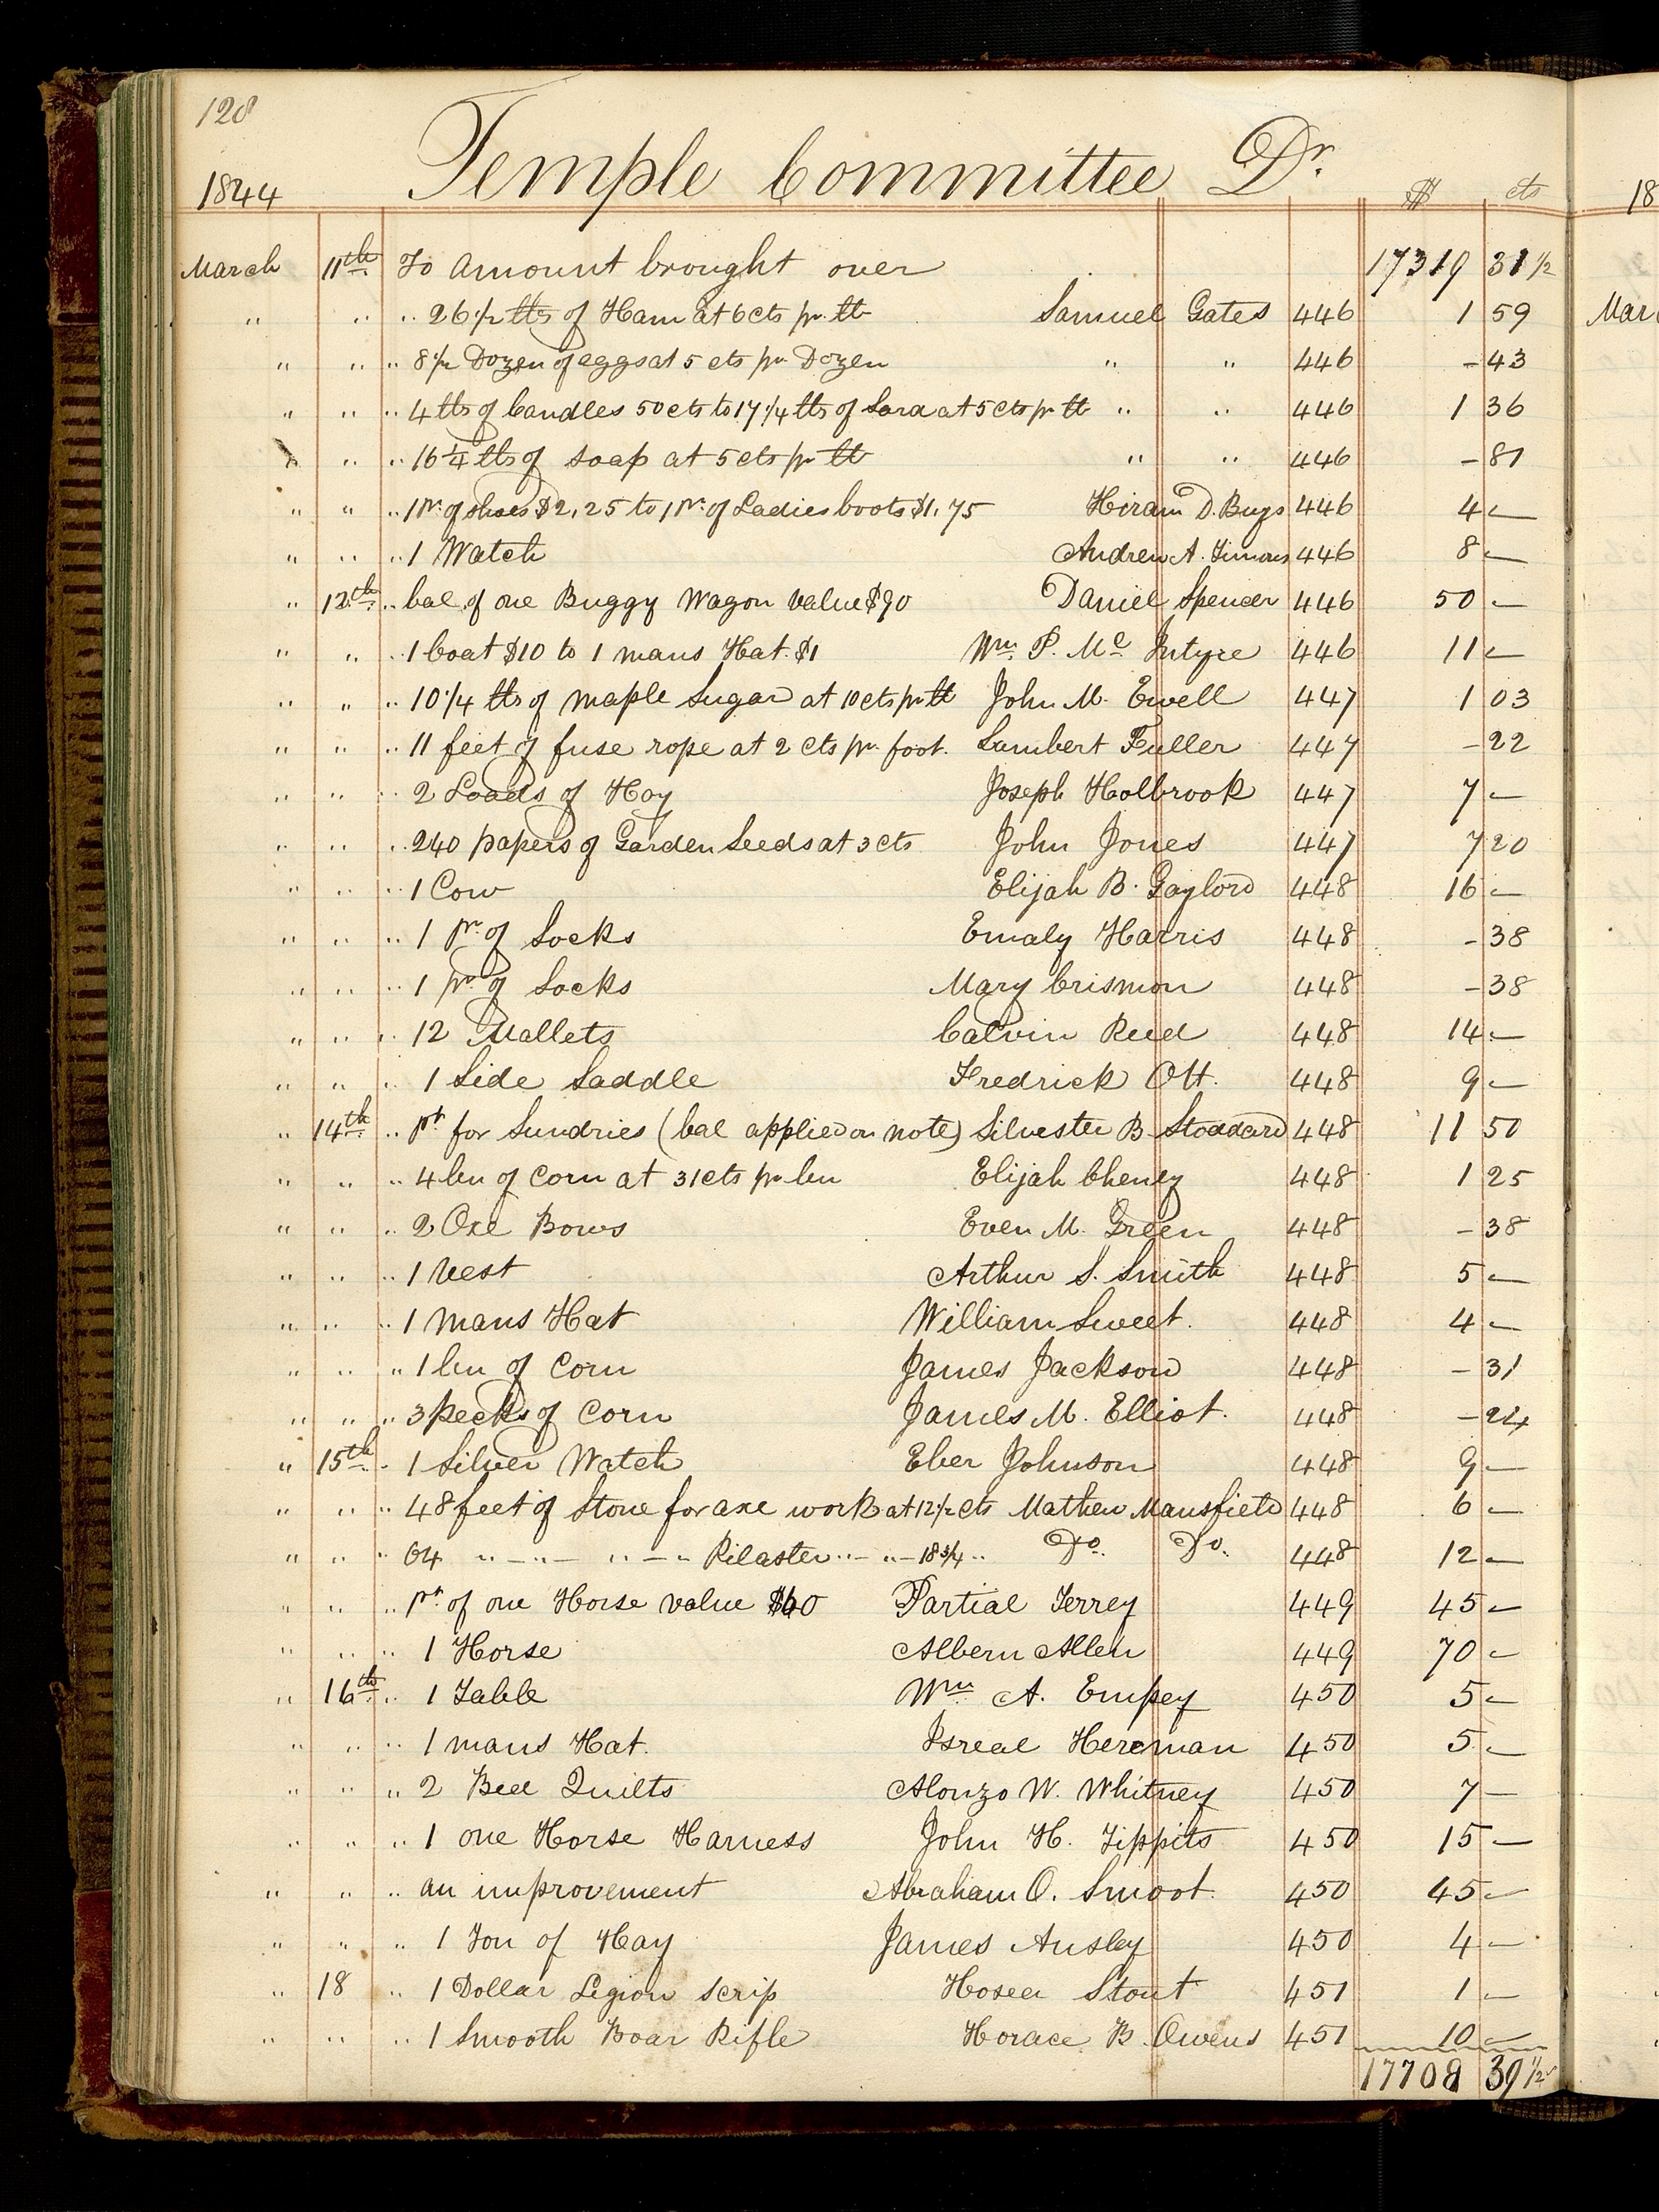 128
1844 Temple Committee Dr.
$ cts
March 11th To Amount brought over 17319 31 1/2
" " " 26 1/2 lbs of Ham at 6 cts pr. lb Samuel Gates 446 1 59
" " " 8 1/2 Dozen of eggs at 5 cts pr Dozen " " 446 - 43
" " " 4 lbs of Candles 50 cts to 17 1/4 lbs of Lard at 5 cts pr lb " " 446 1 36
" " " 16 1/4 lbs of Soap at 5 cts pr lb " " 446 - 81
" " " 1 Pr. of Shoes $2,25 to 1 Pr. of Ladies boots $1,75 Hiram D. Buys 446 4 —
" " " 1 Watch Andrew A. Timons 446 8 —
" 12th " bal of one Buggy Wagon value $90 Daniel Spencer 446 50 —
" " " 1 Coat $10 to 1 mans Hat $1 Wm. P. Mc Intyre 446 11 —
" " " 10 1/4 lbs of maple Sugar at 10 cts pr lb John M. Ewell 447 1 03
" " " 11 feet of fuse rope at 2 cts pr. foot. Lambert Fuller 447 - 22
" " " 2 Loads of Hay Joseph Holbrook 447 7 —
" " " 240 papers of Garden Seeds at 3 cts John Jones 447 7 20
" " " 1 Cow Elijah B. Gaylord 448 16 —
" " " 1 Pr. of Socks Emaly Harris 448 - 38
" " " 1 pr. of Socks Mary Crismon 448 - 38
" " " 12 Mallets Calvin Reed 448 14 —
" " " 1 Side Saddle Fredrick Ott. 448 9 —
" 14th " pt for Sundries (bal applied on note) Silvester B. Stoddard 448 11 50
" " " 4 bu of Corn at 31 cts pr bu Elijah Cheney 448 1 25
" " " 2 Oxe Bows Even M. Green 448 - 38
" " " 1 Vest Arthur S. Smith 448 5 —
" " " 1 Mans Hat William Sweet. 448 4 —
" " " 1 bu of Corn James Jackson 448 - 31
" " " 3 Pecks of Corn James M. Elliot. 448 - 24
" 15th " 1 Silver Watch Eber Johnson 448 9 —
" " " 48 feet of Stone for axe work at 12 1/2 cts Mathew Mansfield 448 6 —
" " " 64 " — " — " — " Pilaster " — " — 18 3/4 " Do. Do. 448 12 —
" " " pt. of one Horse value $60 Partial Terrey 449 45 —
" " " 1 Horse Albern Allen 449 70 —
" 16th " 1 Table Wm A. Empey 450 5 —
" " " 1 mans Hat. Isreal Hereman 450 5 —
" " " 2 Bed Quilts Alonzo W. Whitney 450 7 —
" " " 1 one Horse Harness John H. Tippits 450 15 —
" " " an improvement Abraham O. Smoot 450 45 —
" " " 1 Ton of Hay James Ansley 450 4 —
" 18 " 1 Dollar Legion Scrip Hosea Stout 451 1 —
" " " 1 Smooth Boar Rifle Horace B. Owens 451 10 —
17708 39 1/2
18
Mar